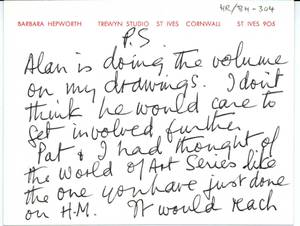 HR/BH-304
BARBARA HEPWORTH TREWYN STUDIO ST IVES CORNWALL ST IVES 905
P.S.
Alan is doing the volume
on my drawings. I don't
think he would care to
get involved further
Pat & I had thought of
the World of Art Series like
the one you have just done
on H.M. It would reach